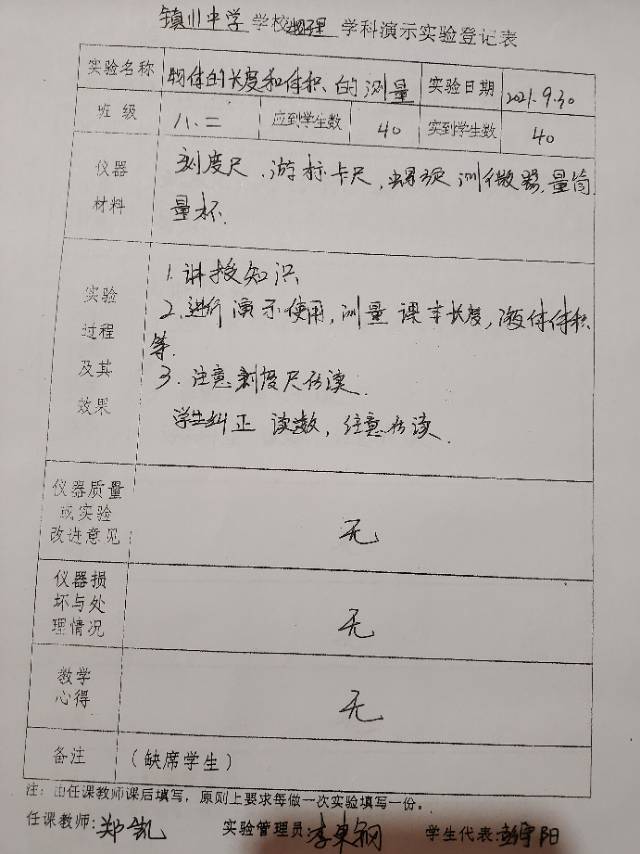 镇川中学 学校 物理 学科演示实验登记表
实验名称 物体的长度和体积的测量 实验日期 2021.9.30
班级 八.二 应到学生数 40 实到学生数 40
仪器材料 刻度尺、游标卡尺、螺旋测微器,量筒,
量杯.
实验过程及其效果
1.讲授知识
2.进行演示使用,测量课本长度,液体体积
等.
3.注意刻度尺估读.
学生纠正读数,注意估读.
仪器质量或实验改进意见: 无
仪器损坏与处理情况 无
教学心得 无
备注 (缺席学生)
注:由任课教师课后填写,原则上要求每做一次实验填写一份。
任课教师:郑凯 实验管理员:李 学生代表:阳